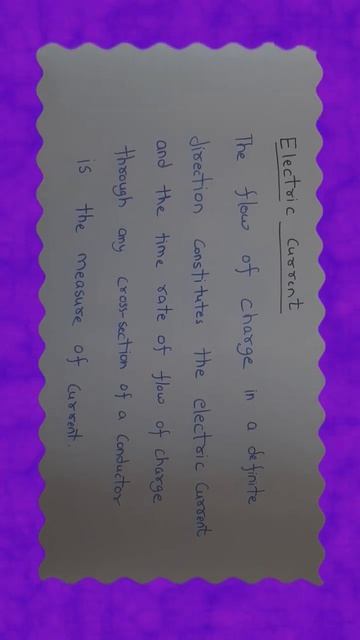 Electric Current
The flow of charge in a definite
direction constitutes the electric current
and the time rate of flow of charge
through any cross-section of a conductor
is the measure of current.